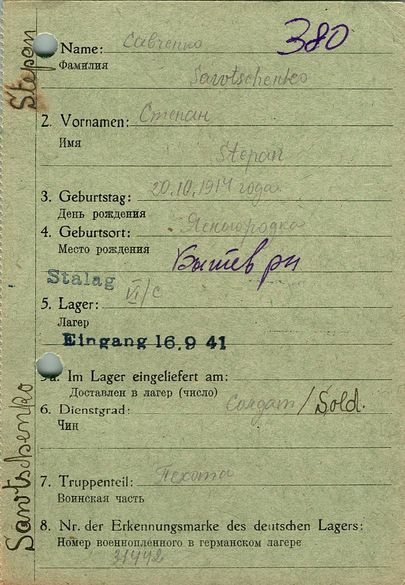 380
Stepan
Name: Савченко
Фамилия
Sawtschenko
2. Vornamen: Степан
Имя
Stepan
3. Geburtstag: 20.10.1914 года
День рождения
4. Geburtsort: Ясногородка
Место рождения
Stalag
VI/c
5. Lager:
Лагер
Eingang 16.9 41
5a. Im Lager eingeliefert am:
Доставлен в лагер (число)
6. Dienstgrad: Солдат / Sold.
Чин
7. Truppenteil: Пехота
Воинская часть
8. Nr. der Erkennungsmarke des deutschen Lagers:
Номер военнопленного в германском лагере
Sawtschenko